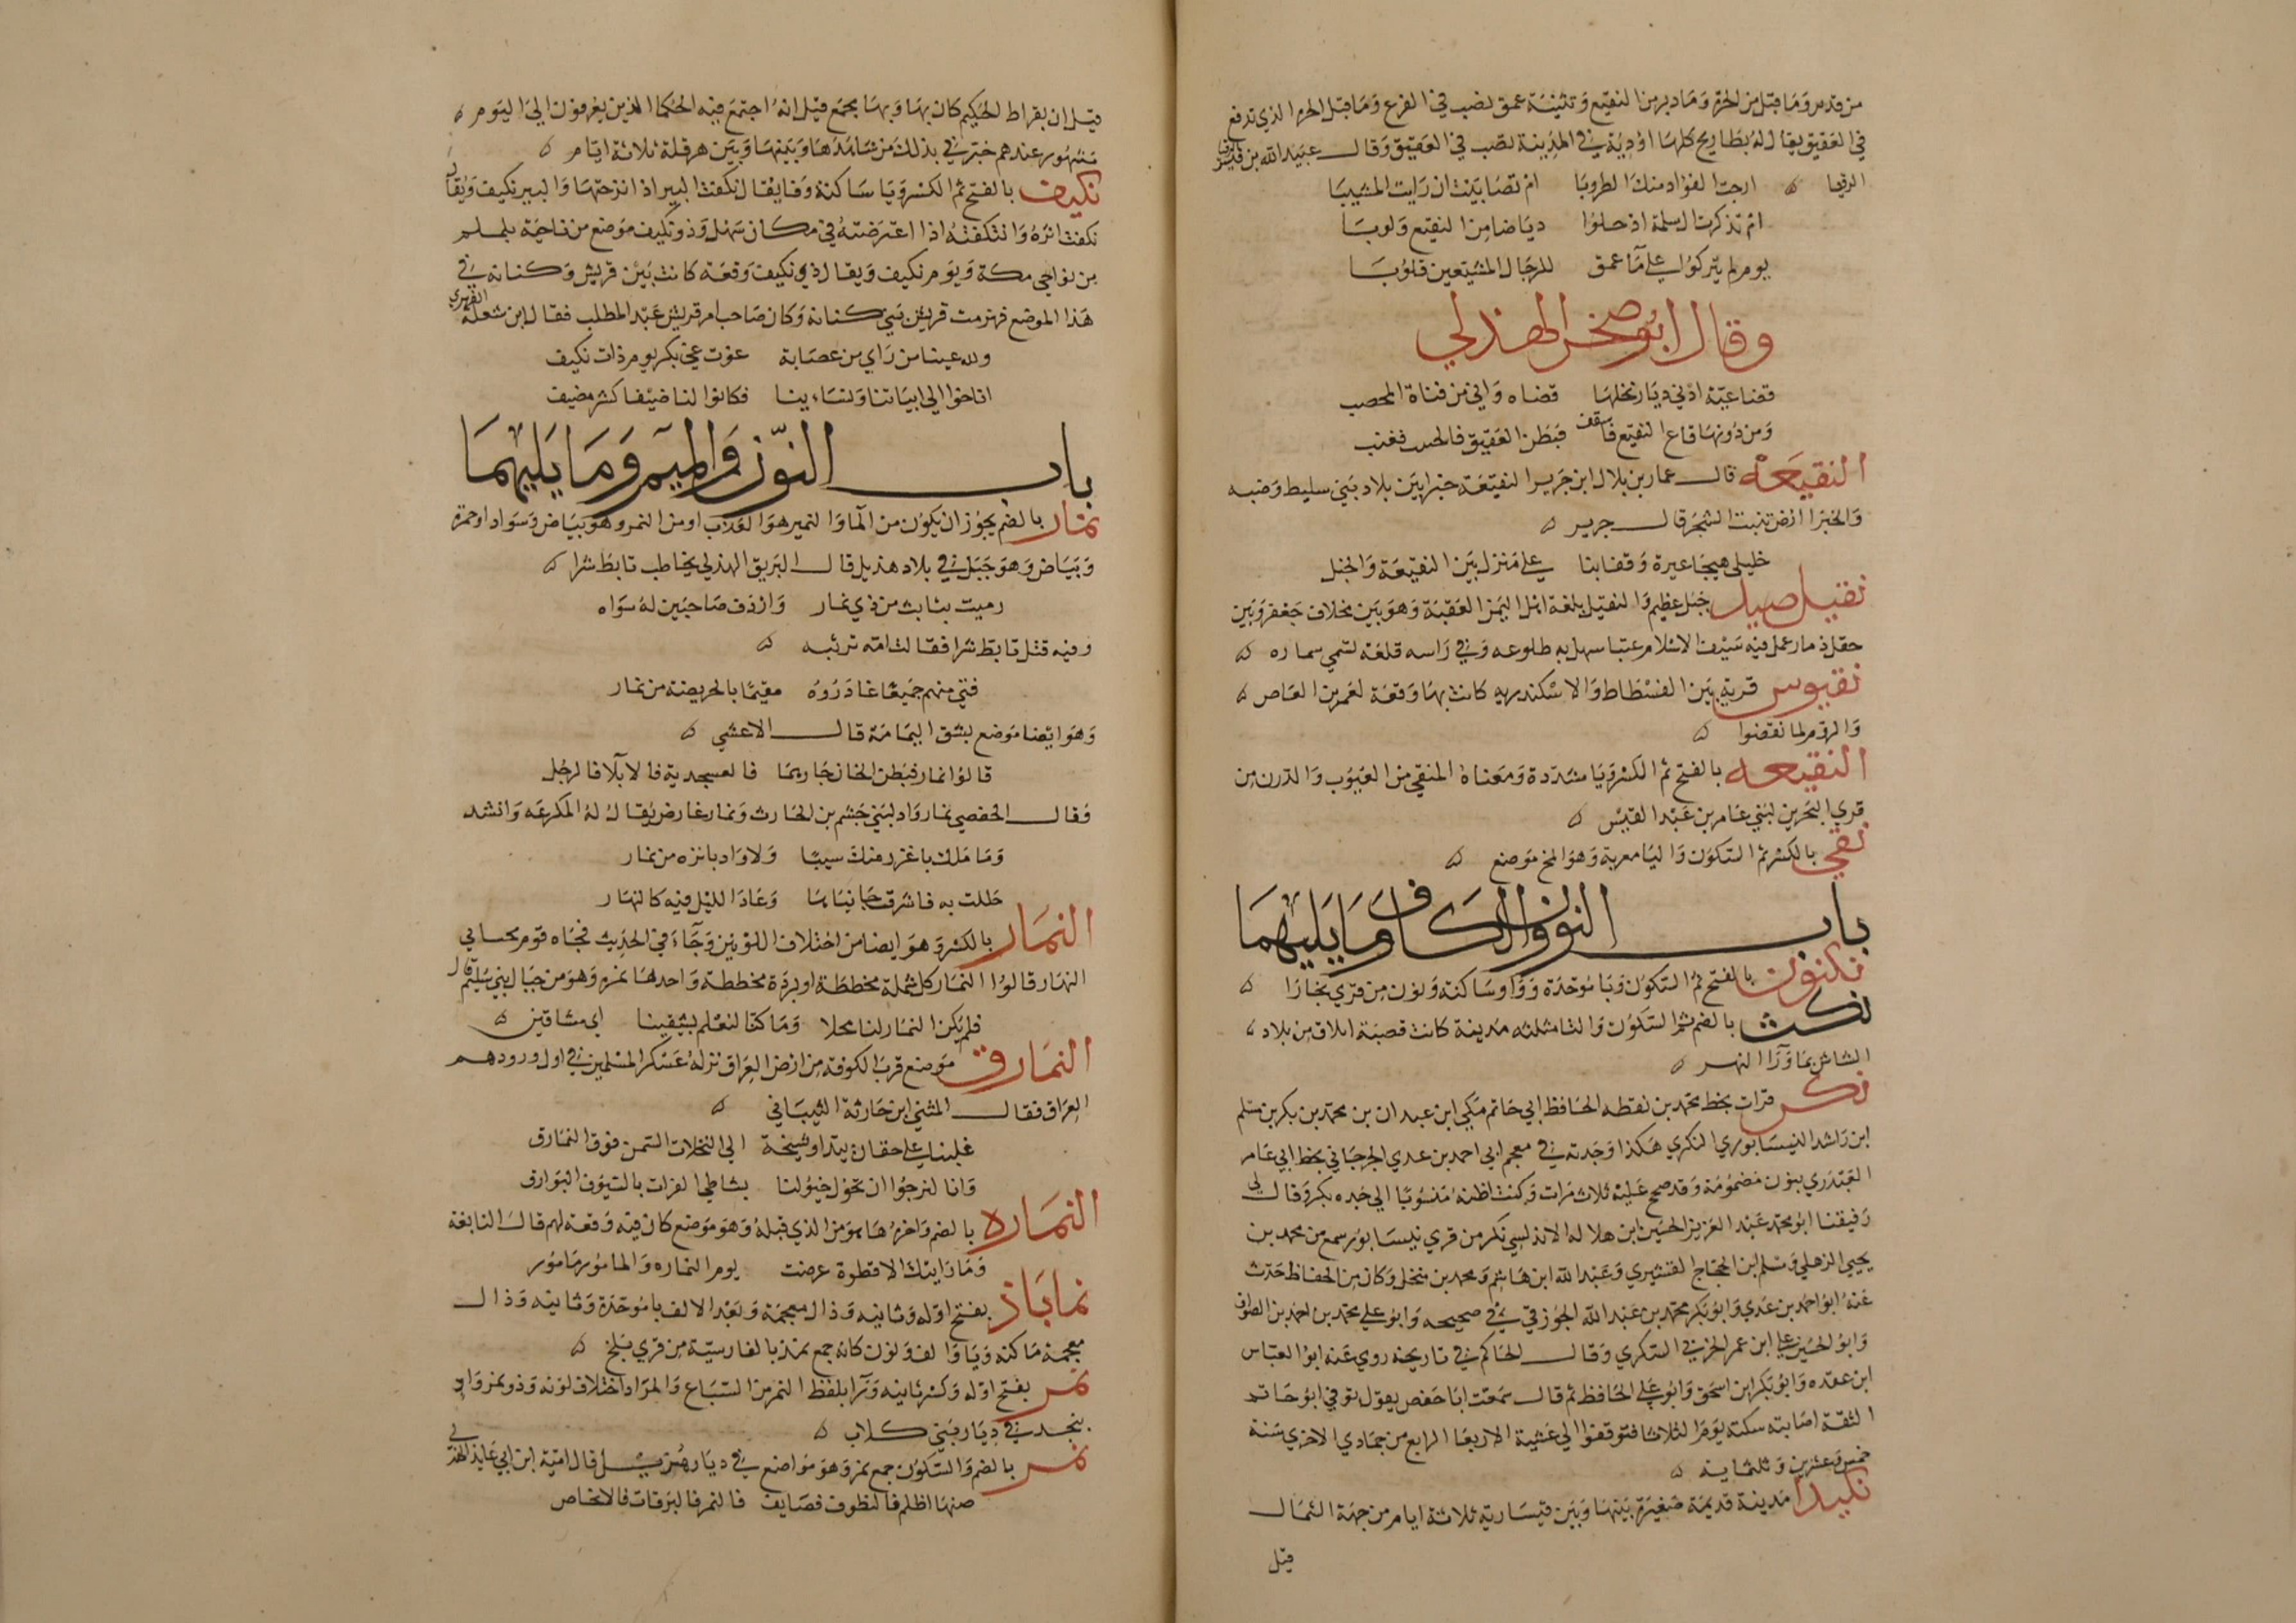 من قدس وما قبل من الحرة وما دبر من النقيع وتثنية عمق نصب في الفرع وما قبل الحرة الذي تدفع
في العقيق يقال له بطاريح كلها اودية في المدينة تصب في العقيق وقال عبيد الله بن قيس
الرقيا ارحت الفؤاد منك الطروبا ام تصابيت ان رايت المشيبا
ام تذكرت ال سلمة اذ حلوا رياضا من النقيع ولوبا
يوم لم يتركوا على ما عمق للرجال المشيعين قلوبا
وقال ابو صخر الهذلي
قضاعية ادني ديار تحلها قضاه واني من قناة المحصب
ومن دونها قاع النقيع فاسقف فبطن العقيق فعنب
النقيعه قال عمار بن بلال ابن جرير النقيعة خبرا بين بلاد بني سليط وضبه
والخبرا ارض تنبت الشجر قال جرير
خليلي هيجا عبرة وقفا بنا علي منزل بين النقيعة والحبل
نقيل صيد جبل عظيم والنقيل بلغة اهل اليمن العقبة وهو بين مخلاف جعفر وبين
حقل ذمار عمل فيه سيف الاسلام عتبا سهل به طلوعه وفي راسه قلعة تسمي سماره
نقيوس قرية بين الفسطاط والاسكندريه كانت بها وقعة لعمرو بن العاص
والروم لما نقضوا
النقيعه بالفتح ثم الكسر ويا مشددة ومعناه المنقي من العيوب والدرن من
قري البحرين لبني عامر بن عبد القيس
نقي بالكسر ثم السكون واليا معربة وهو المخ موضع
باب النون والكاف وما يليهما
نكبون بالفتح ثم السكون وبا موحدة وواو ساكنة ونون من قري بخارا
نكث بالضم ثم السكون والثا مثلثه مدينة كانت قصبة ايلاق من بلاد
الشاش بما ورآ النهر
نكر قرات بخط محمد بن نقطه الحافظ ابي حاتم مكي ابن عبدان بن محمد بن بكر بن مسلم
ابن راشد النيسابوري النكري هكذا وجدته في معجم ابي احمد بن عدي الجرجاني بخط ابي عامر
العبدري بنون مضمومة وقد صح عليه ثلاث مرات وكنت اظنه منسوبا الي جده بكر وقال لي
رفيقنا ابو محمد عبد العزيز الحسين ابن هلاله الاندلسي نكر من قري نيسابور سمع من محمد بن
يحيي الذهلي ومسلم ابن الحجاج القشيري وعبد الله ابن هاشم ومحمد بن منخل وكان من الحفاظ حدث
عنه ابو احمد بن عدي وابو بكر محمد بن عبد الله الجوزقي في صحيحه وابو علي محمد بن احمد بن الصواف
وابو الحسين علي ابن عمر الحربي السكري وقال الحاكم في تاريخه روي عنه ابو العباس
ابن عقده وابو بكر ابن اسحق وابو علي الحافظ ثم قال سمعت ابا حفص يقول توفي ابو حاتم
الثقة اصابته سكتة يوم الثلاثا فتوقفوا الي عشية الاربعا الرابع من جمادي الاخري سنة
خمس وعشرين وثلثماية
نكيدا مدينة قديمة صغيرة بينها وبين قيسارية ثلاثة ايام من جهة الشمال
قيل
قيل ان بقراط الحكيم كان بها وبها مجمع قيل انه اجتمع فيه الحكما الذين يعرفون الي اليوم
مشهور عندهم خبرني بذلك من شاهدها وبينها وبين هرقلة ثلاثة ايام
نكيف بالفتح ثم الكسر ويا ساكنة وفا يقال نكفت البير اذا نزحتها والبير نكيف ويقال
نكفت اثره وانتكفته اذا اعترضته في مكان سهل وذو نكيف موضع من ناحية يلملم
من نواحي مكة ويوم نكيف ويقال ذي نكيف وقعة كانت بين قريش وكنانه في
هذا الموضع فهزمت قريش بني كنانه وكان صاحب امر قريش عبد المطلب فقال ابن شعلة الفهري
ولله عينا من راي من عصابة غوت غي بكر يوم ذات نكيف
اناخوا الي ابياتنا ونساءينا فكانوا لنا ضيفا كشر مضيف
باب النون والميم وما يليهما
نمار بالضم يجوز ان يكون من الما والنمير هو العذب او من النمر وهو بياض وسواد او حمرة
وبياض وهو جبل في بلاد هذيل قال البريق الهذلي يخاطب تابط شرا
رميت بثابت من ذي نمار واردف صاحبين له سواه
وفيه قتل تابط شرا فقالت امه ترثيه
فتي منهم جميعا غادروه مقيما بالحريضة من نمار
وهو ايضا موضع بشق اليمامة قال الاعشي
قالوا نمار فبطن الخال جادهما فالعسجدية فالابلا فالرجل
وقال الحفصي نمار واد لبني جشم بن الحارث ونمار عارض يقال له المكرعه وانشد
وما ملك باغزر منك سيبا ولا واد بانزه من نمار
حللت به فاشرق جانباها وعاد الليل فيه كالنهار
النمار بالكسر وهو ايضا من اختلاف اللونين وجاء في الحديث فجاه قوم
النمار قالوا النمار كل شملة مخططة او بردة مخططة واحدها نمره وهو من جبال بني سليم قال
فلم يكن النمار لنا محلا وما كنا لنعلم بثقينا اي مشاقين
النمارق موضع قرب الكوفة من ارض العراق نزله عسكر المسلمين في اول ورودهم
العراق فقال المثني ابن حارثة الشيباني
غلبنا علي خفان بيدا وشيحة الي النخلات السمر فوق النمارق
وانا لنرجوا ان تجول خيولنا بشاطي الفرات بالسيوف البوارق
النماره بالضم واخره ها من الذي قبله وهو موضع كان فيه وقعة لهم قال النابغة
وما رايتك الا قطوة عرضت يوم النماره والمامور مامور
نماباذ بفتح اوله وثانيه وذال معجمة وبعد الالف با موحدة وثانيه وذال
معجمة ويا والف ونون كانه جمع نمذ بالفارسية من قري بلخ
نمر بفتح اوله وكسر ثانيه ورا بلفظ النمر من السباع والمراد اختلاف لونه وذو نمر واد
بنجد في ديار بني كلاب
نمر بالضم والسكون جمع نمر وهو مواضع في ديار هذيل قال امية ابن ابي عايذ الهذلي
ضها اظلم فالنظوف فصايف فالنمر فالبرقات فالانحاص